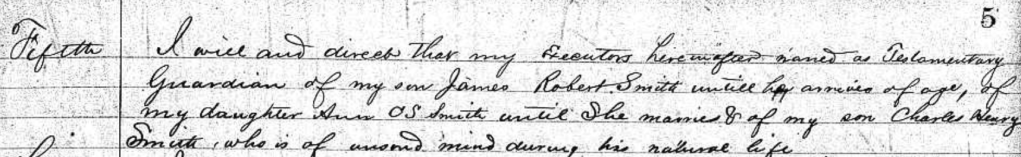 5
Fifth I will and direct that my Executors hereinafter named as Testamentary
Guardian of my son James Robert Smith untill he arrives of age, of
my daughter Ann OS Smith until She marries & of my son Charles Henry
Smith, who is of unsond mind during his natural life